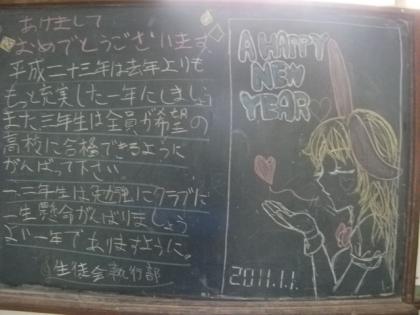 あけまして
おめでとうございます
平成二十三年は去年よりも
もっと充実した一年にしましょう
また三年生は全員が希望の
高校に合格できるように
がんばって下さい
一二年生は勉強にクラブに
一生懸命がんばりましょう
よい一年でありますように。
生徒会執行部
A HAPPY
NEW
YEAR
2011.1.1.